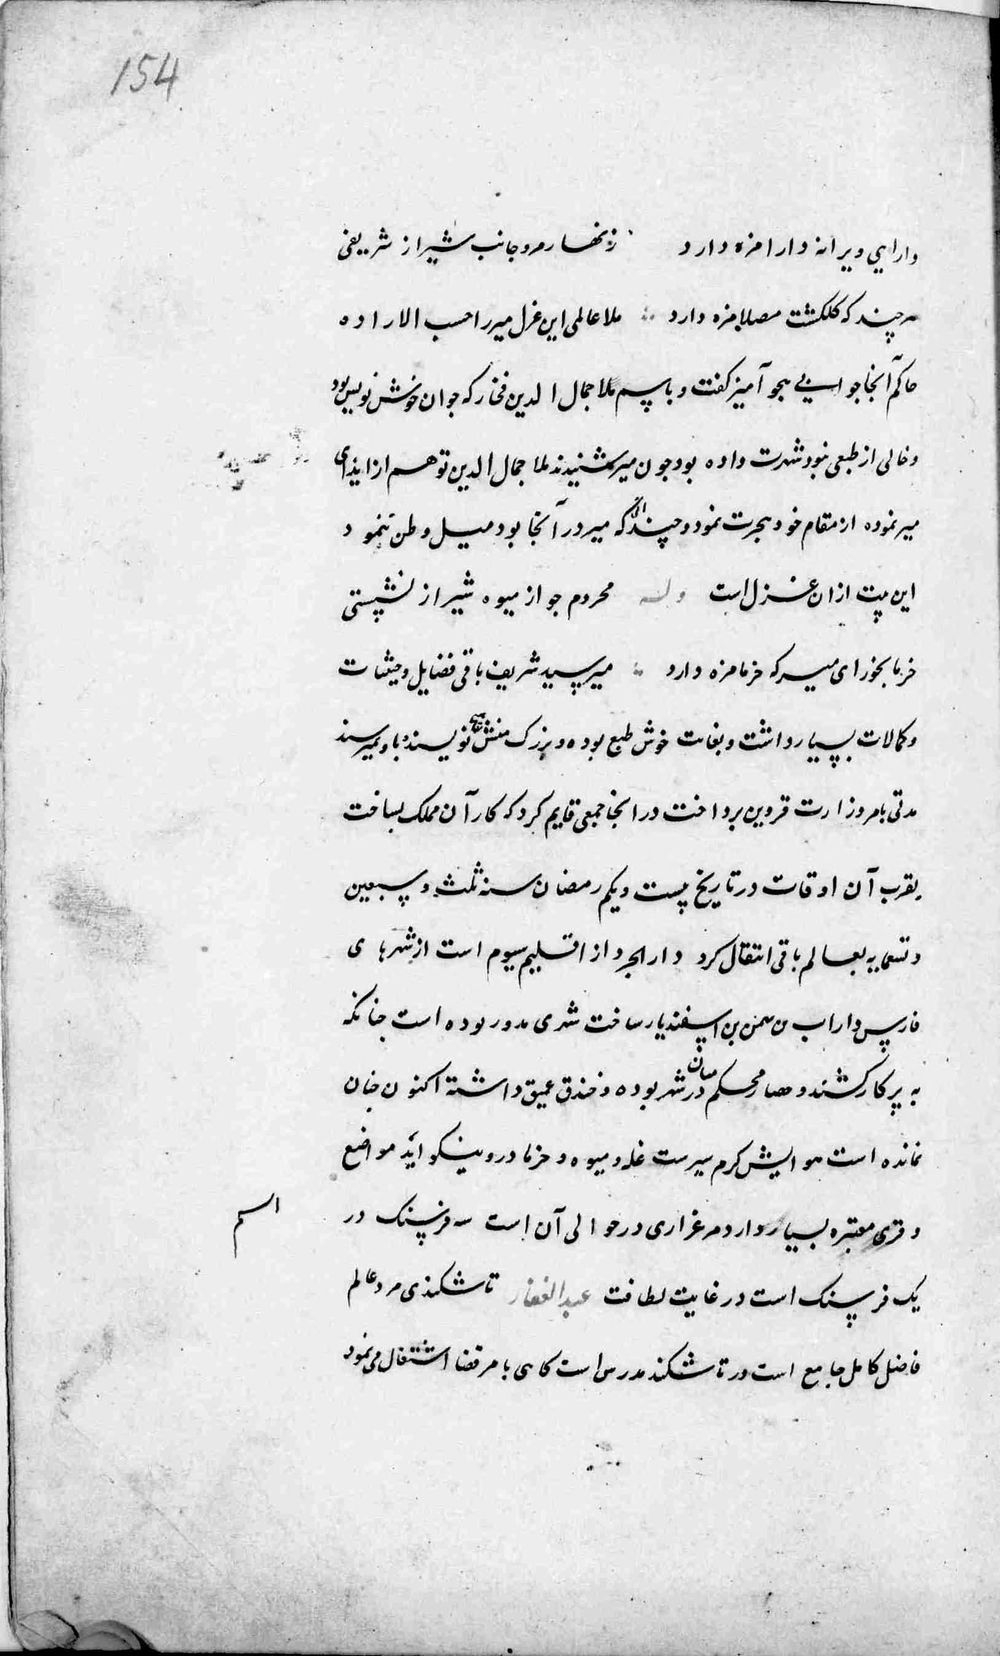 154
وارایی ویرانه دارا مزه دارد زنهار مرو جانب شیراز شریفی
هرچند که گلکشت مصلا مزه دارد ملا عالمی این غزل میر را حسب الاراده
حاکم آنجا جوابی هجو آمیز گفت و باسم ملا جمال الدین فخار که جوان خوش نویس بود
و خالی از طبعی نبود شهرت داده بود چون میر شنیدند ملا جمال الدین توهم از ایذای
میر نموده از مقام خود هجرت نمود و چندانکه میر در آنجا بود میل وطن ننمود
این بیت ازان غزل است وله محروم چو از میوه شیراز نشستی
خرما بخور ای میر که خرما مزه دارد میر سید شریف باقی فضایل و حیثیات
و کمالات بسیار داشت و بغایت خوش طبع بوده و بزرگ منش هیچ نویسنده باو نمیرسد
مدتی بامر وزارت قزوین پرداخت در آنجا جمعی قایم کرد که کار آن مملک بساخت
بقرب آن اوقات در تاریخ بیست و یکم رمضان سنه ثلث و سبعین
و تسعمایه بعالم باقی انتقال کرد دارابجرد از اقلیم سیوم است از شهرهای
فارس داراب بن بهمن بن اسفندیار ساخت شهری مدور بوده است چنانکه
به پرکار کشند و حصار محکم در میان شهر بوده و خندق عمیق داشته اکنون چنان
نمانده است هوایش گرم سیرست غله و میوه و خرما درو نیکو آید مواضع
و قری معتبره بسیار دارد مرغزاری در حوالی آن است سه فرسنگ در
اسم
یک فرسنگ است در غایت لطافت عبدالغفار تاشکندی مرد عالم
فاضل کامل جامع است در تاشکند مدرس است کاهی بامر قضا اشتغال می نمود